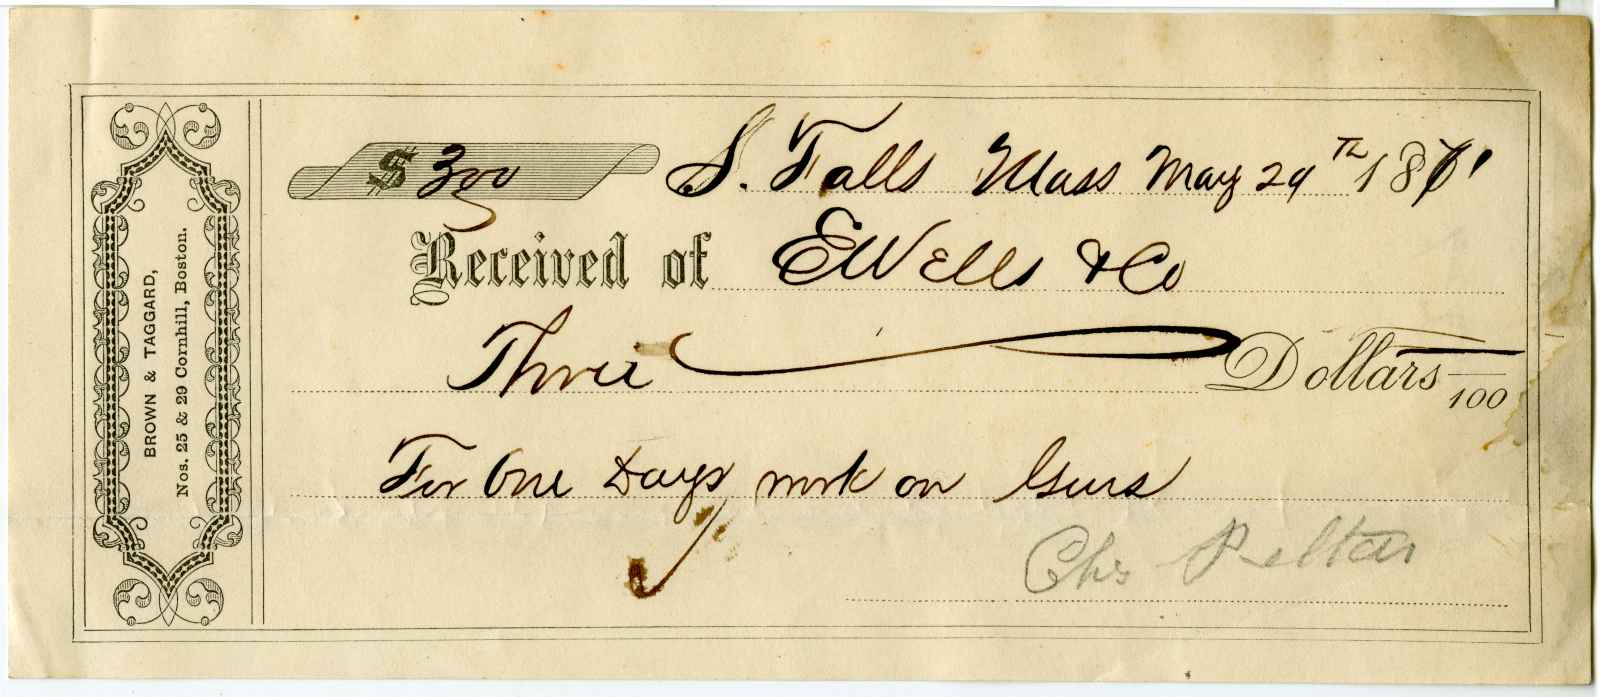 BROWN & TAGGARD,
Nos. 25 & 29 Cornhill, Boston.
$ 300 S. Falls Mass May 29th 1871
Received of E Wells & Co
Three Dollars /100
For One Days work on Guns
Chs Peltier